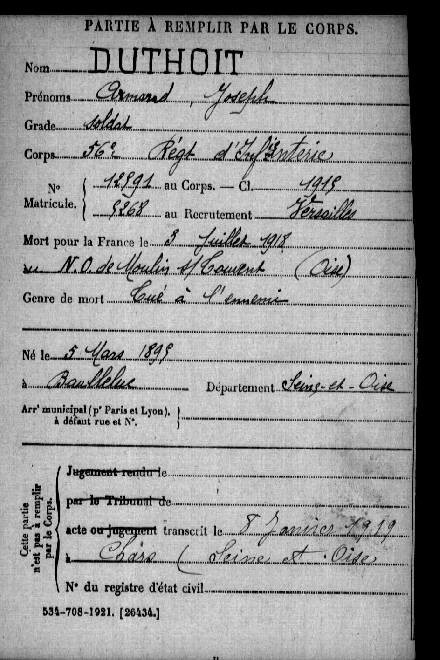 PARTIE À REMPLIR PAR LE CORPS.
Nom DUTHOIT
Prénoms Armand, Joseph
Grade soldat
Corps 56e Régt d'Infanterie
N° Matricule. { 12891 au Corps. — Cl. 1915
5268 au Recrutement Versailles
Mort pour la France le 3 Juillet 1918
au N.O. de Moulin s/s Touvent (Oise)
Genre de mort Tué à l'ennemi
Né le 5 Mars 1895
à Département Seine-et-Oise
Arrt municipal (pr Paris et Lyon), à défaut rue et N°.
Cette partie n'est pas à remplir par le Corps.
Jugement rendu le
par le Tribunal de
acte ou jugement transcrit le 8 Janvier 1919
à Chars (Seine et Oise
N° du registre d'état civil
534-708-1921. [26434.]